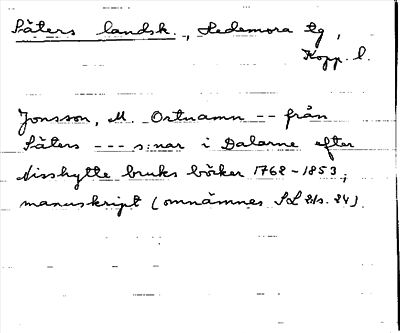 Säters landsk., Hedemora tg,
Kopp. l.
Jonsson, M. Ortnamn -- från
Säters --- s:nar i Dalarne efter
Nisshytte bruks böcker 1768-1853;
manuskript (omnämnes SL s. 24)